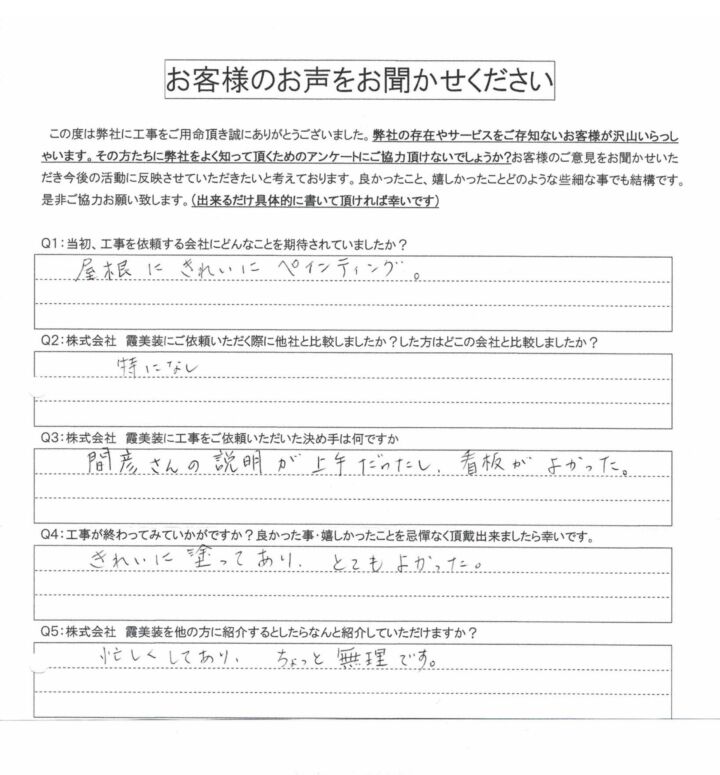 お客様のお声をお聞かせください
この度は弊社に工事をご用命頂き誠にありがとうございました。弊社の存在やサービスをご存知ないお客様が沢山いらっし
ゃいます。その方たちに弊社をよく知って頂くためのアンケートにご協力頂けないでしょうか？お客様のご意見をお聞かせいた
だき今後の活動に反映させていただきたいと考えております。良かったこと、嬉しかったことどのような些細な事でも結構です。
是非ご協力お願い致します。（出来るだけ具体的に書いて頂ければ幸いです）
Q1：当初、工事を依頼する会社にどんなことを期待されていましたか？
屋根にきれいにペインティング。
Q2：株式会社　霞美装にご依頼いただく際に他社と比較しましたか？した方はどこの会社と比較しましたか？
特になし
Q3：株式会社　霞美装に工事をご依頼いただいた決め手は何ですか
間彦さんの説明が上午だったし、看板がよかった。
Q4：工事が終わってみていかがですか？良かった事・嬉しかったことを忌憚なく頂戴出来ましたら幸いです。
きれいに塗ってあり、とてもよかった。
Q5：株式会社　霞美装を他の方に紹介するとしたらなんと紹介していただけますか？
忙しくしてあり、ちょっと無理です。